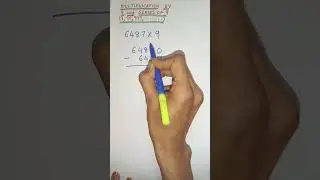 MULTIPLICATION BY
9 AND SERIES OF 9
6487 × 9
648 0
- 64